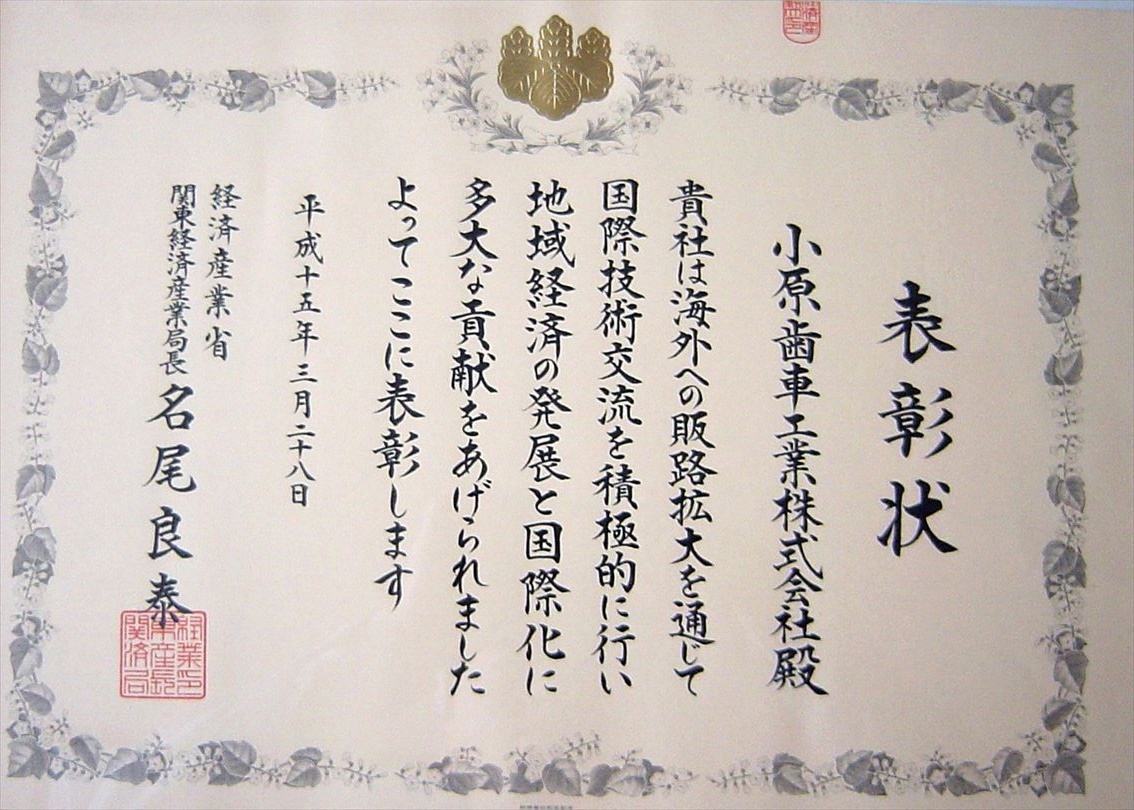 表彰状
小原歯車工業株式会社殿
貴社は海外への販路拡大を通じて
国際技術交流を積極的に行い
地域経済の発展と国際化に
多大な貢献をあげられました
よってここに表彰します
平成十五年三月二十八日
経済産業省
関東経済産業局長
名尾良泰